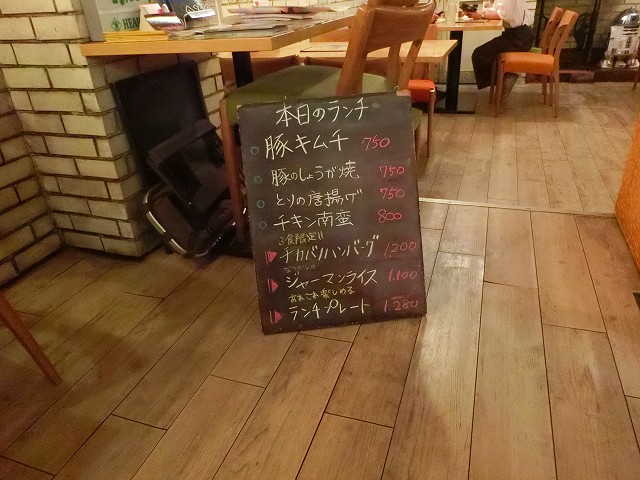 本日のランチ
豚キムチ 750
豚のしょうが焼 750
とりの唐揚げ 750
チキン南蛮 800
3食限定!!
チカバリハンバーグ 1,200
ジャーマンライス 1,100
あれこれ楽しめる
ランチプレート 1,280